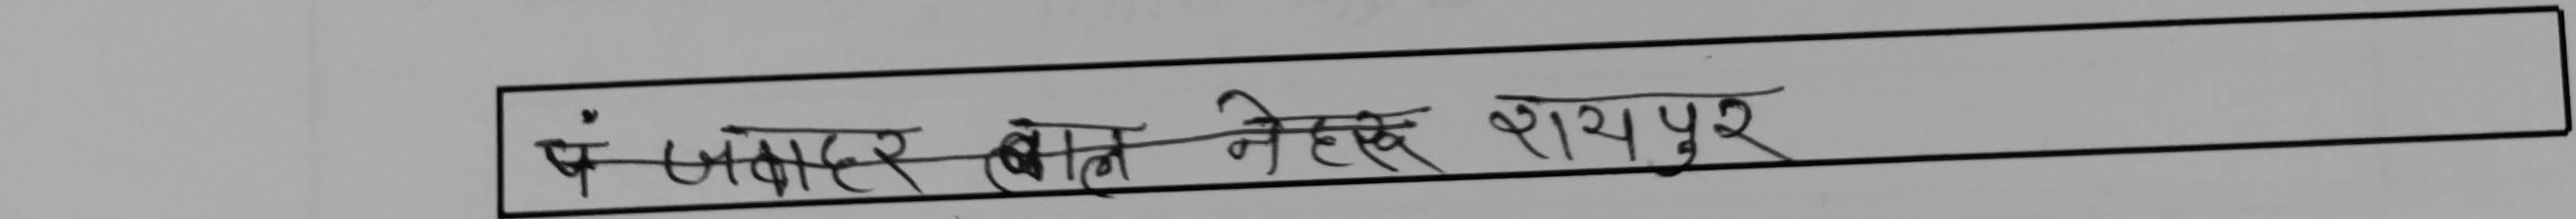 पं जवाहर लाल नेहरू रायपुर